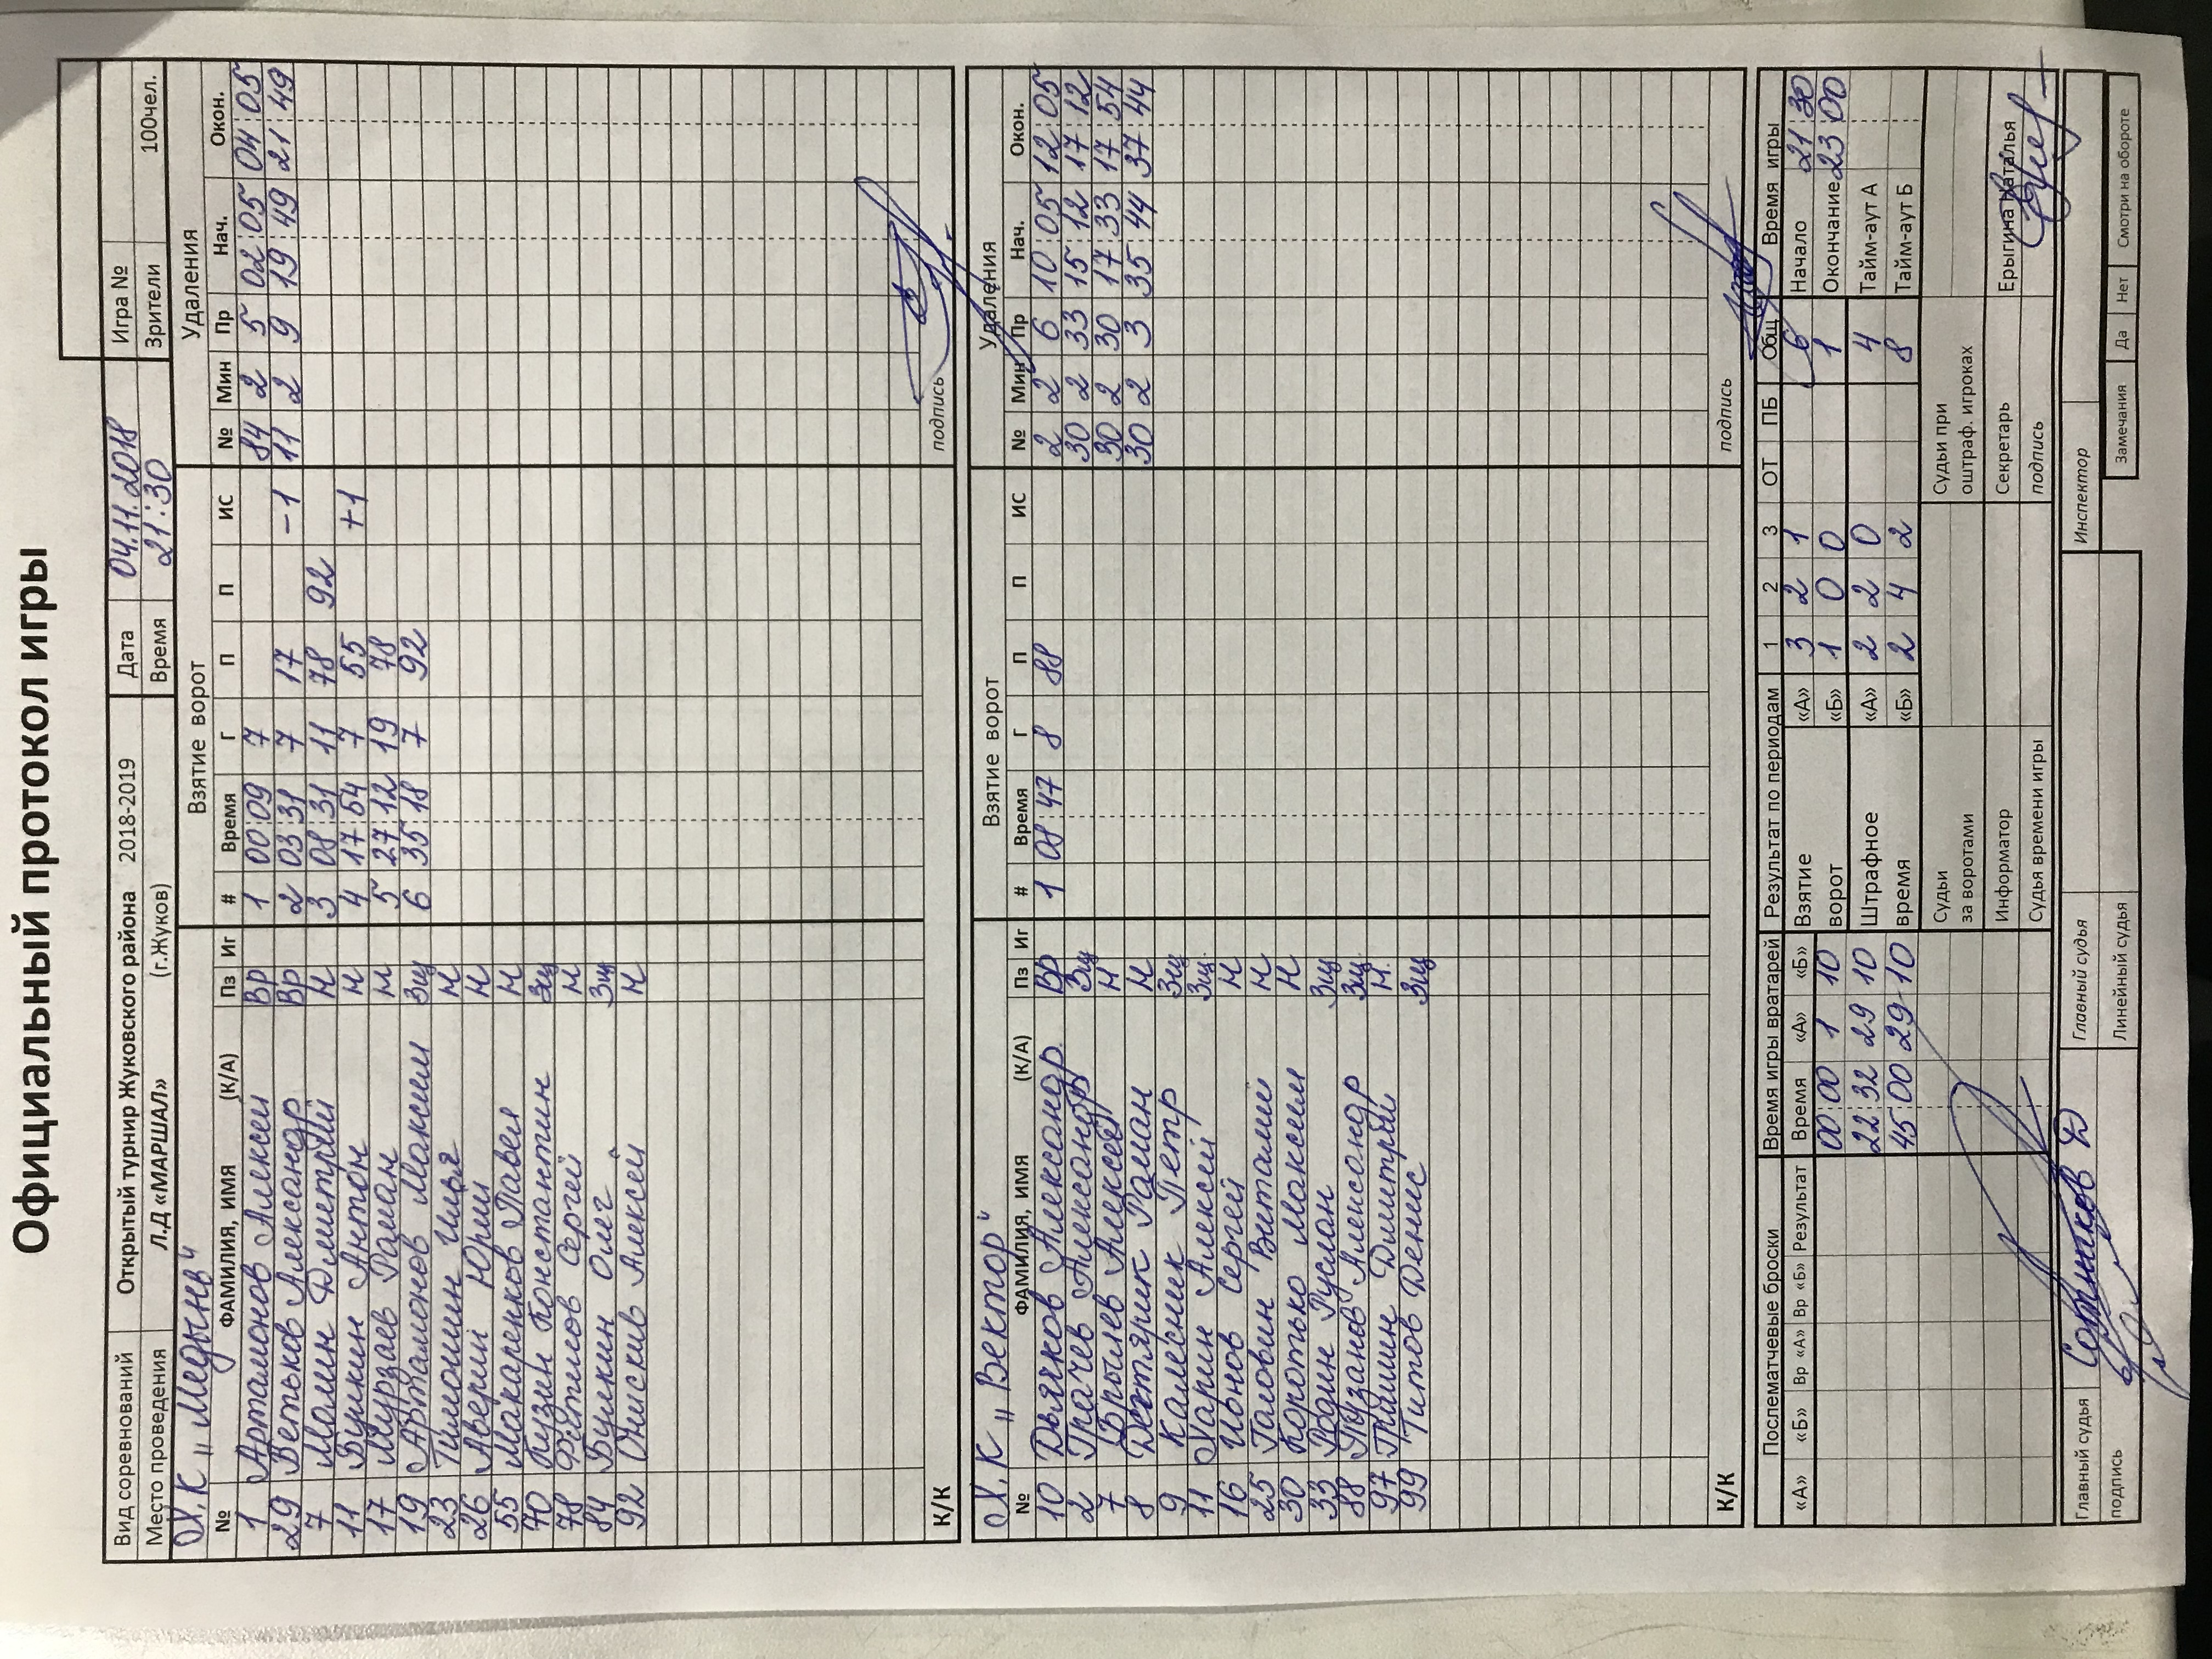 Официальный протокол игры
Вид соревнований Открытый турнир Жуковского района 2018-2019 Дата 04.11.2018 Игра №
Место проведения Л.Д «МАРШАЛ» (г.Жуков) Время 21:30 Зрители 100чел.
Х.К "Медынь" Взятие ворот Удаления
№ ФАМИЛИЯ, ИМЯ (К/А) Пз Иг # Время Г П П ИС № Мин Пр Нач. Окон.
1 Артамонов Алексей Вр 1 00:09 7 84 2 5 02:05 04:05
29 Ветьков Александр Вр 2 03:31 7 17 -1 11 2 9 19:49 21:49
7 Мамин Дмитрий Н 3 08:31 11 78 92
11 Букин Антон Н 4 17:54 7 55 +1
17 Мурзаев Роман Н 5 27:12 19 78
19 Артамонов Максим Зщ 6 35:18 7 92
23 Тимошин Илья Н
26 Аверин Юрий Н
55 Макаренков Павел Н
70 Кузин Константин Зщ
78 Сергей Н
84 Букин Олег Зщ
92 Алексей Н
К/К подпись
Х.К "Вектор" Взятие ворот Удаления
№ ФАМИЛИЯ, ИМЯ (К/А) Пз Иг # Время Г П П ИС № Мин Пр Нач. Окон.
10 Дьячков Александр Вр 1 08:47 8 88 2 2 6 10:05 12:05
2 Ткачев Александр Зщ 30 2 33 15:12 17:12
7 Алексей Н 30 2 30 17:33 17:54
8 Дегтярик Роман Н 30 2 3 35:44 37:44
9 Калесник Петр Зщ
11 Ларин Алексей Зщ
16 Сергей Н
25 Виталий Н
30 Коротько Максим Н
33 Родин Руслан Зщ
88 Пузанов Александр Зщ
97 Дмитрий Н
99 Титов Денис Зщ
К/К подпись
Послематчевые броски Время игры вратарей Результат по периодам 1 2 3 ОТ ПБ Общ Время игры
«А» «Б» Вр «А» Вр «Б» Результат Время «А» «Б» Взятие «А» 3 2 1 6 Начало 21 30
00:00 1 10 ворот «Б» 1 0 0 1 Окончание 23 00
22 32 29 10 Штрафное «А» 2 2 0 4 Тайм-аут А
45 00 29 10 время «Б» 2 4 2 8 Тайм-аут Б
Судьи Судьи при
за воротами оштраф. игроках
Информатор Секретарь Ерыгина Наталья
Судья времени игры подпись
Главный судья Сотников Д Главный судья Инспектор
подпись Линейный судья Замечания Да Нет Смотри на обороте